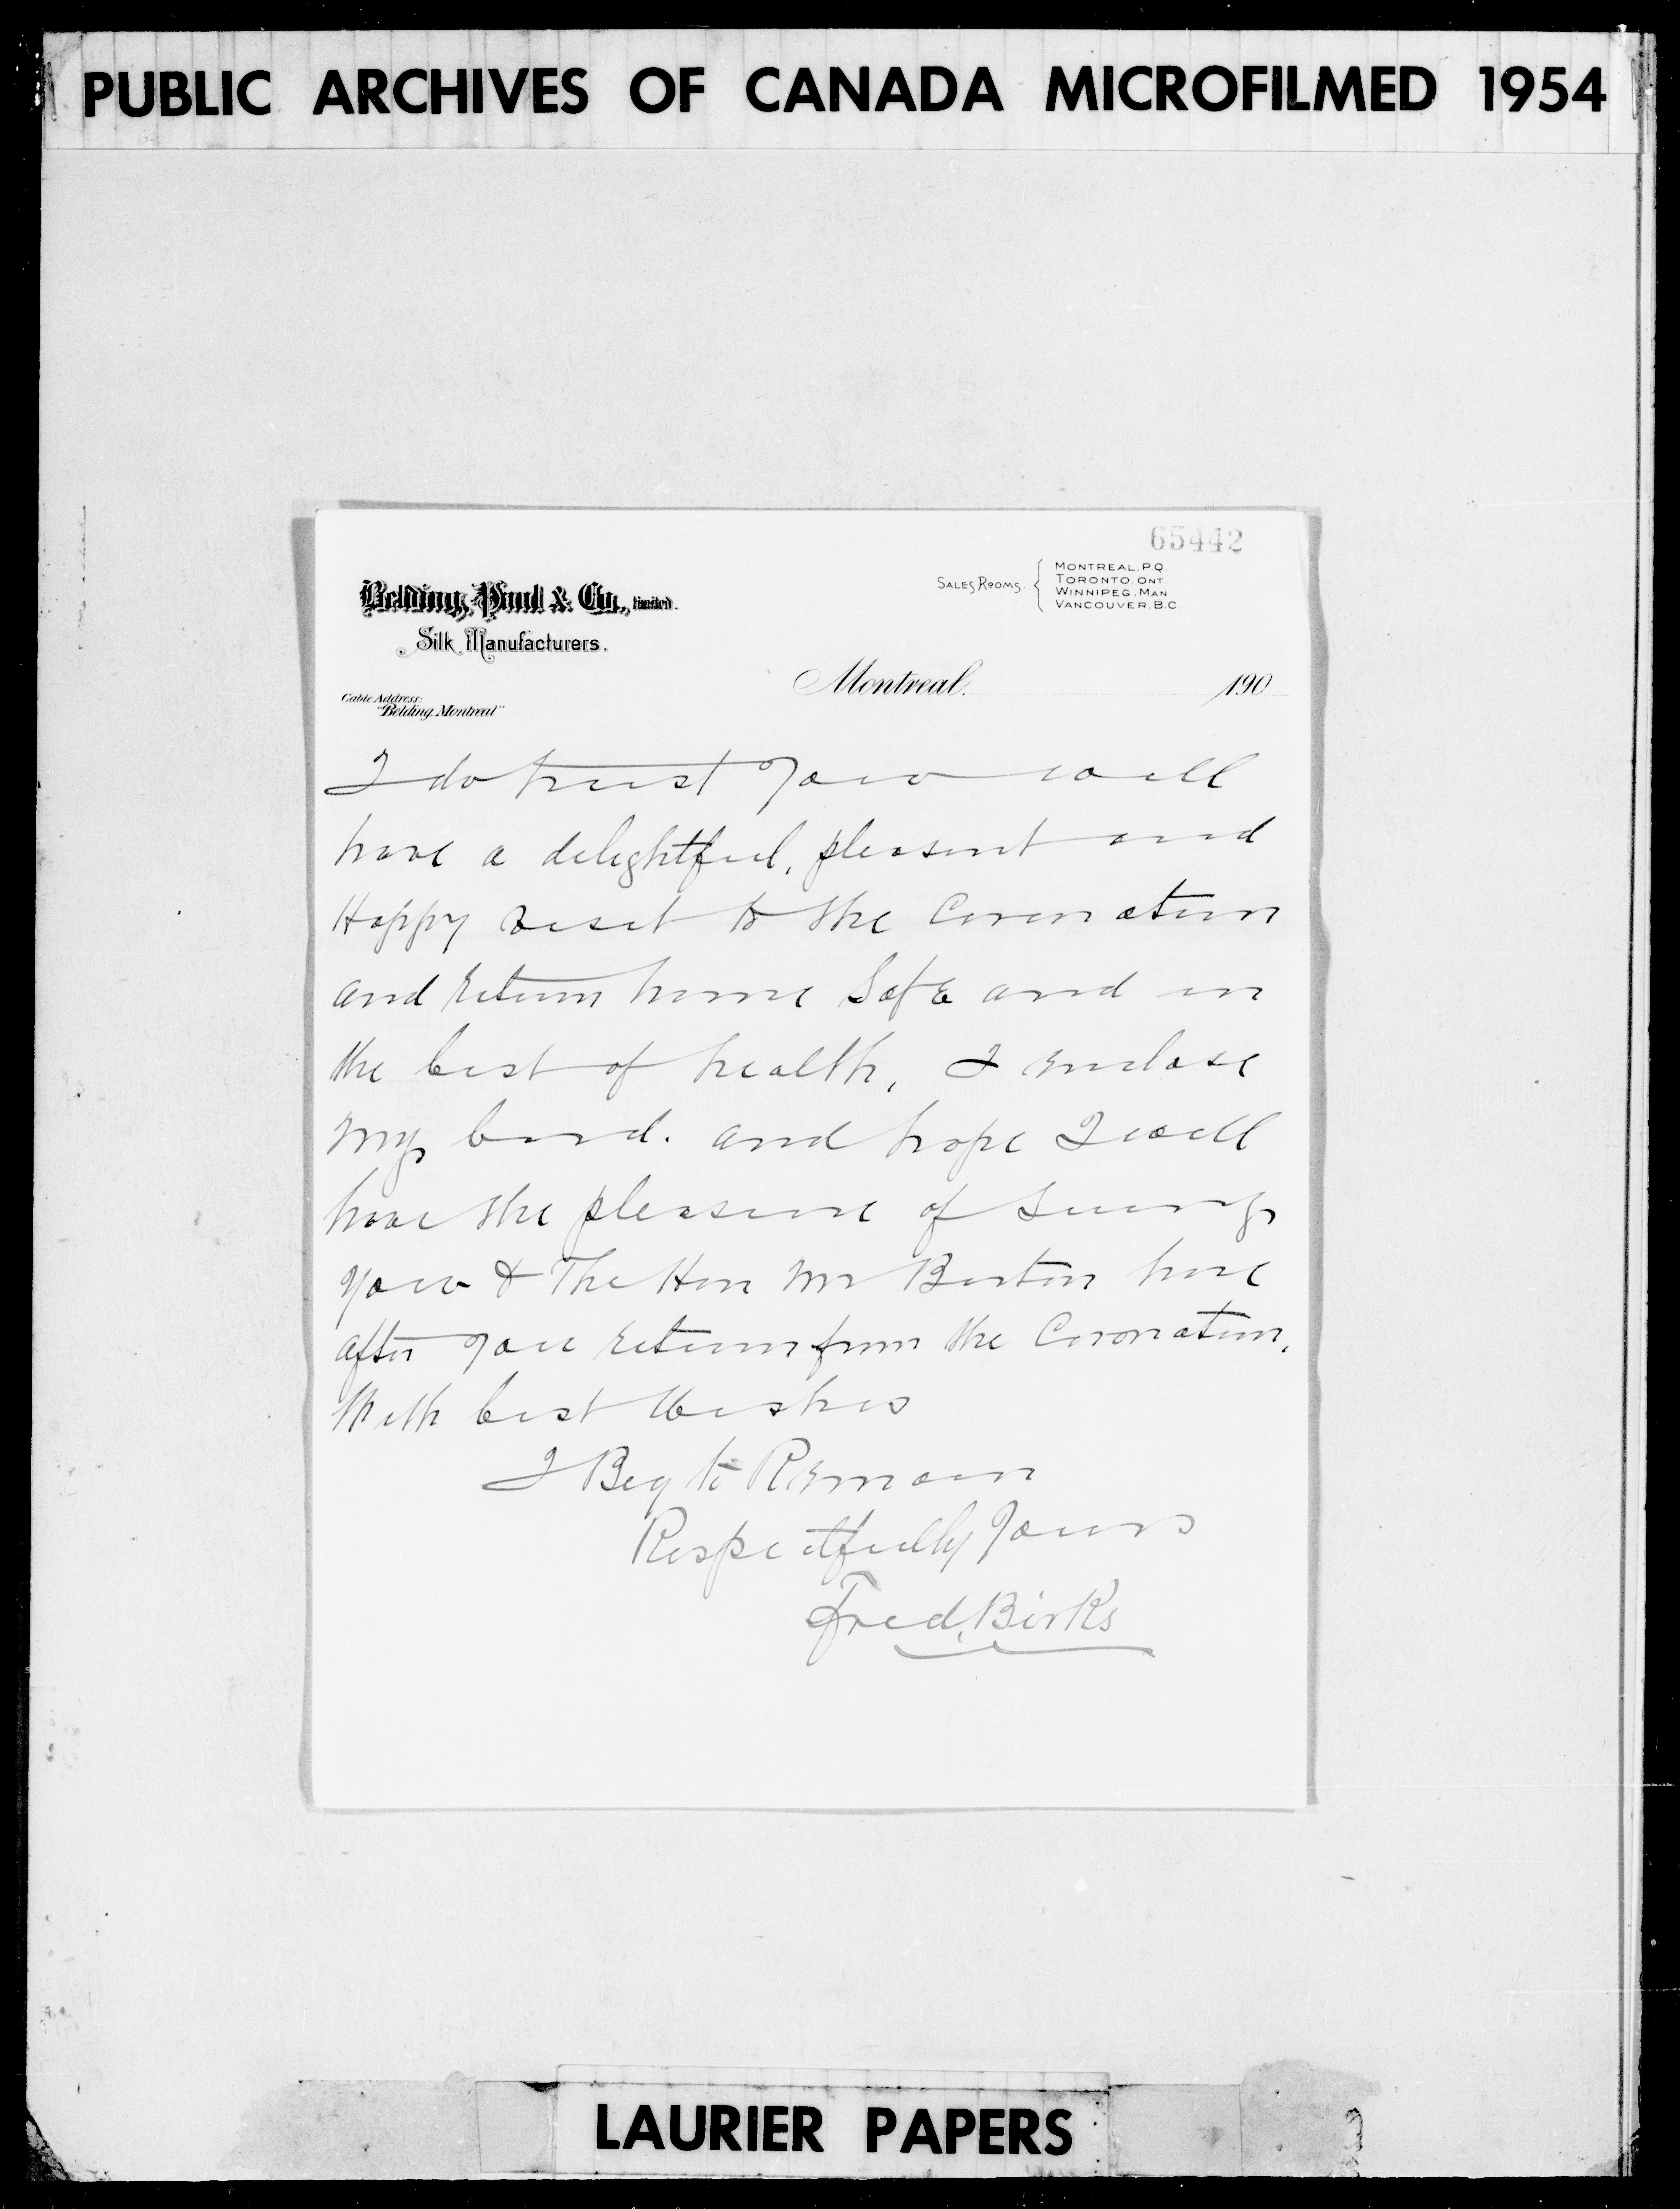 PUBLIC ARCHIVES OF CANADA MICROFILMED 1954
65442
Belding, Paul & Co., Limited.
Silk Manufacturers.
Cable Address:
"Belding, Montreal"
SALES ROOMS.
MONTREAL, P.Q.
TORONTO, ONT
WINNIPEG, MAN
VANCOUVER, B.C.
Montreal, 190
I do trust you will
have a delightful, pleasant and
Happy visit to the Coronation
and return home Safe and in
the best of health, I enclose
my card. and hope I will
have the pleasure of Seeing
you & The Hon Mr here
after your return from the Coronation.
With best Wishes
I Beg to Remain
Respectfully Yours
Fred. Birks
LAURIER PAPERS